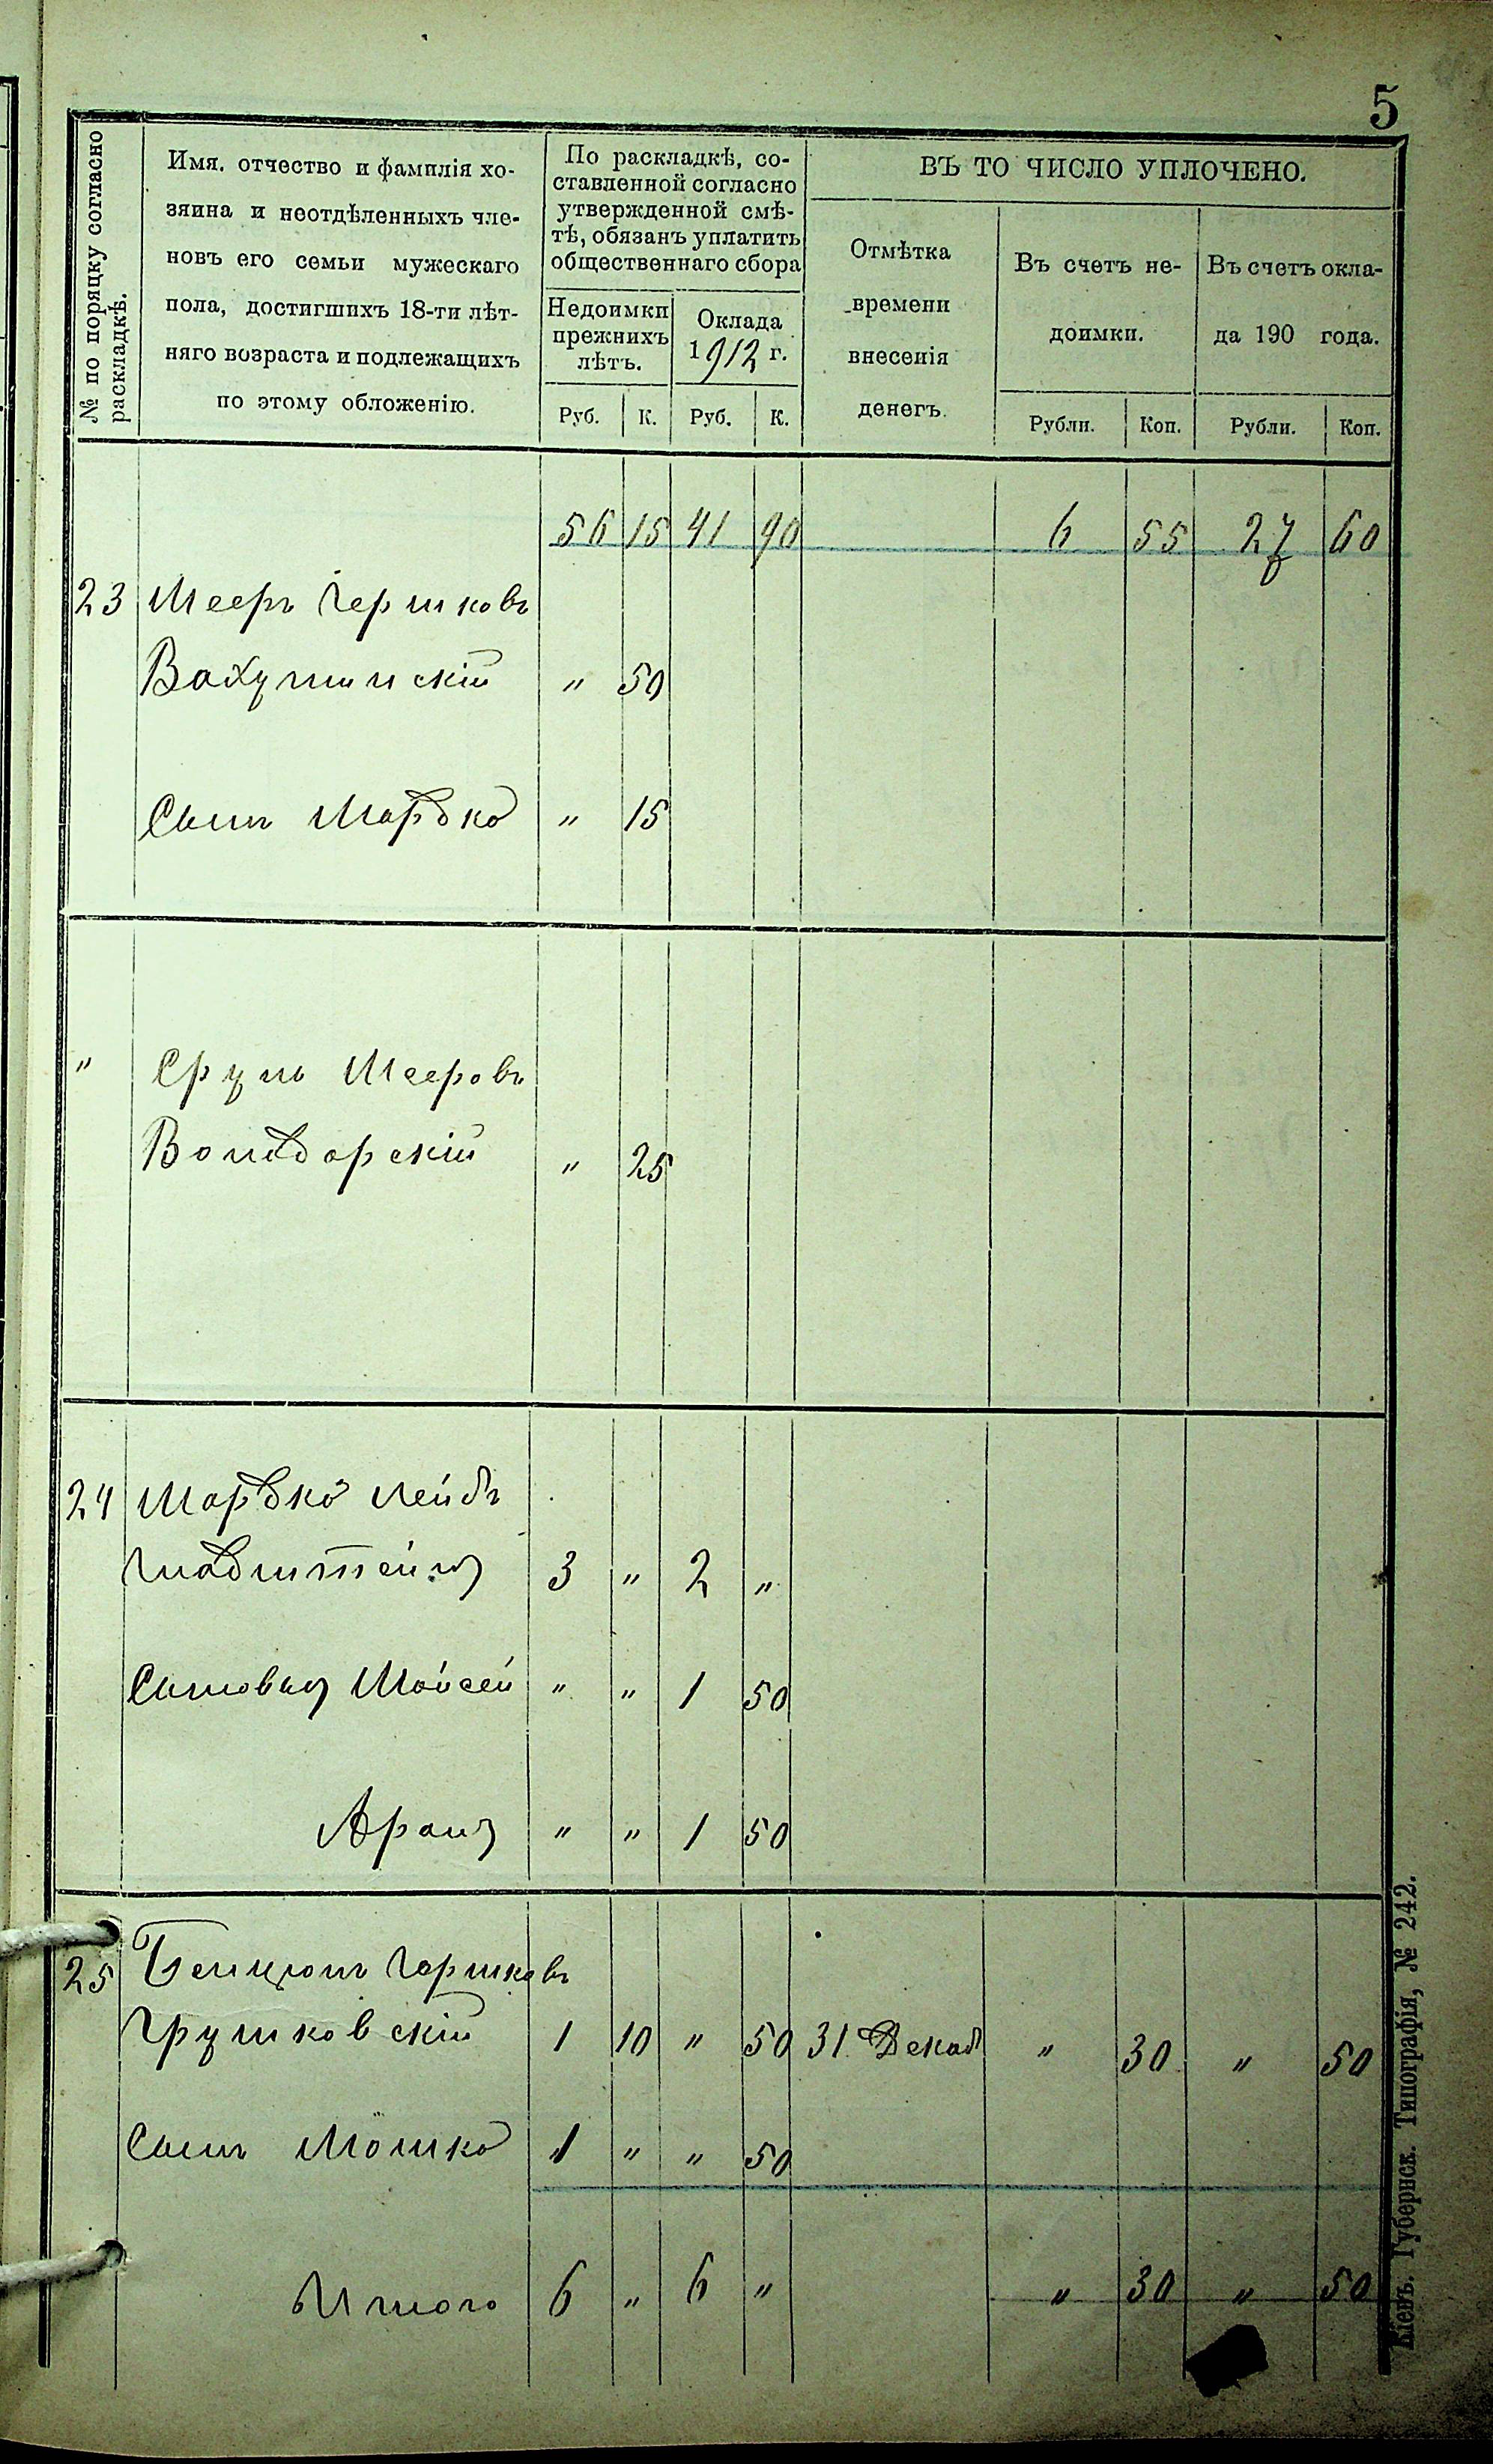 5
№ по порядку согласно
раскладкѣ.
Имя, отчество и фамилія хо-
зяина и неотдѣленныхъ чле-
новъ его семьи мужескаго
пола, достигшихъ 18-ти лѣт-
няго возраста и подлежащихъ
по этому обложенію.
По раскладкѣ, со-
ставленной согласно
утвержденной смѣ-
тѣ, обязанъ уплатить
общественнаго сбора
Недоимки
прежнихъ
лѣтъ.
Оклада
1912 г.
Руб. К. Руб. К.
ВЪ ТО ЧИСЛО УПЛОЧЕНО.
Отмѣтка
времени
внесенія
денегъ.
Въ счетъ не-
доимки.
Въ счетъ окла-
да 190 года.
Рубли. Коп. Рубли. Коп.
56 15 41 90 6 55 27 60
23 Мееръ Гершковъ
" 50
Сынъ Мордко " 15
" Сруль Мееровъ
" 25
24 Мордко Лейбъ
Гладштейнъ 3 " 2 "
Сыновья Мойсей " " 1 50
Аронъ " " 1 50
25 Бенционъ Гершковъ
Грушковскій 1 10 " 50 31 Декаб " 30 " 50
Сынъ Мошко 1 " " 50
Итого 6 " 6 " " 30 " 50
Кіевъ. Губернск. Типографія, № 242.